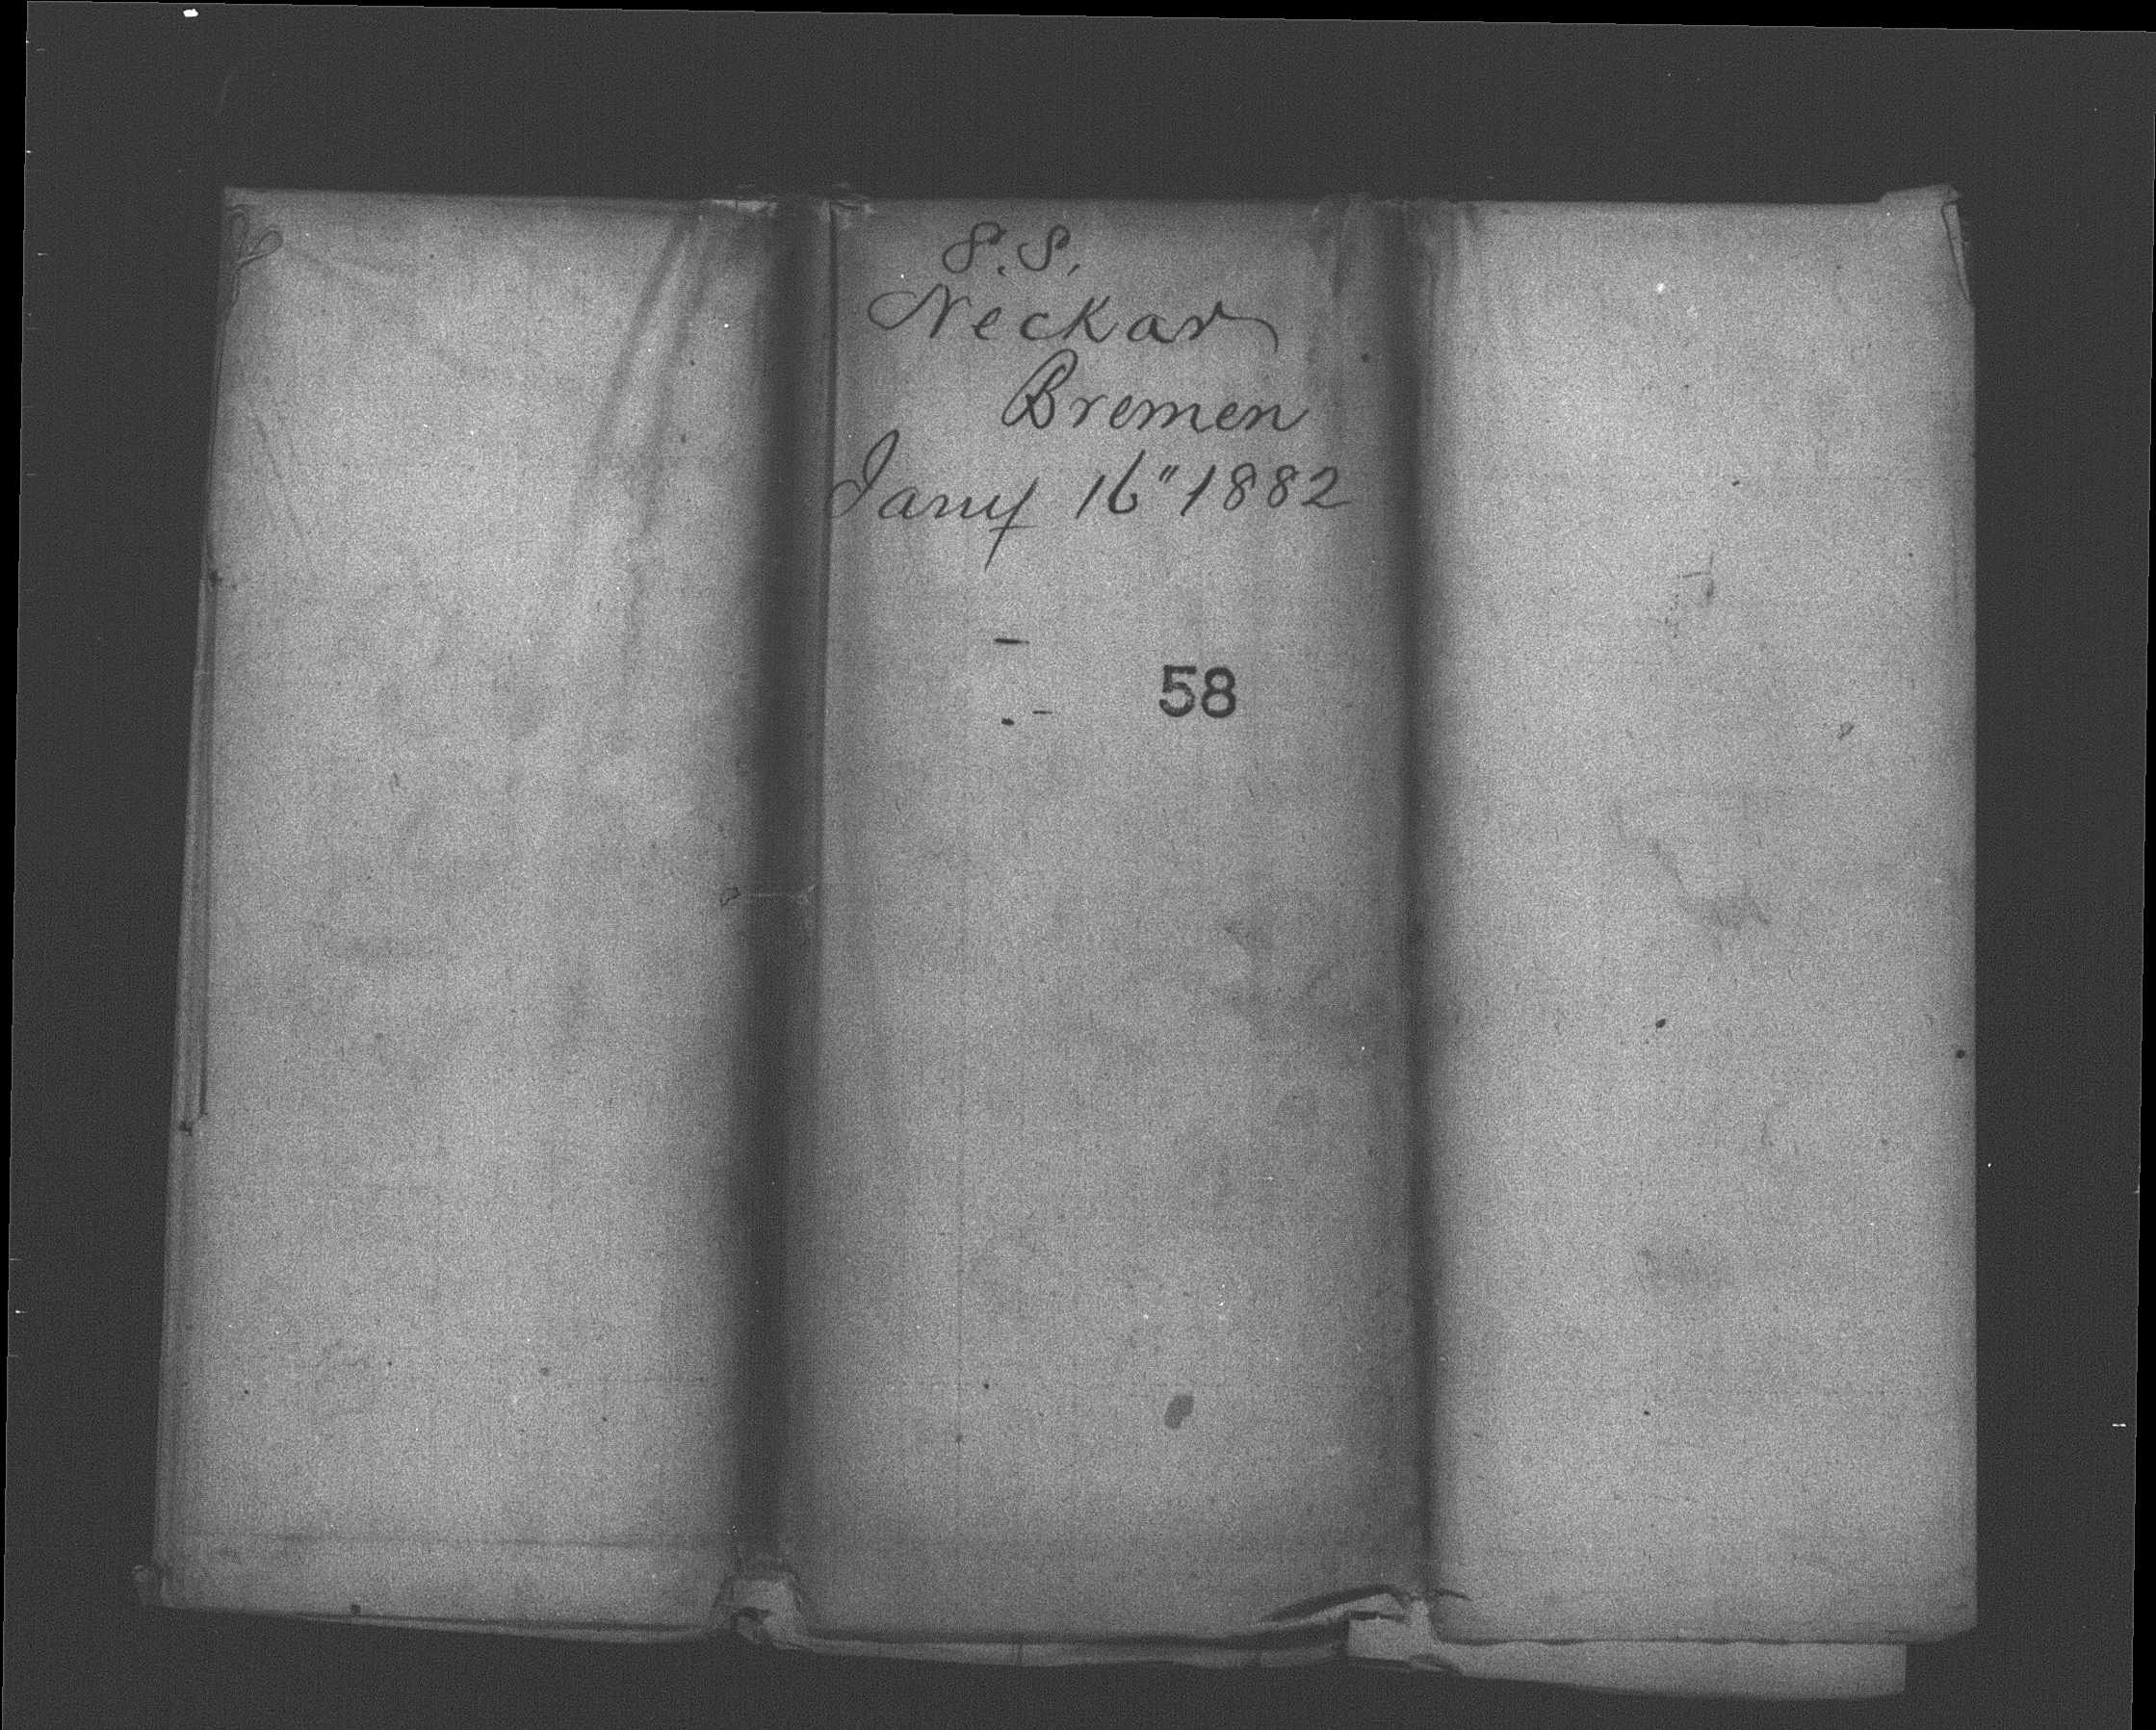 S.S.
Neckar
Bremen
Jany 16" 1882
58